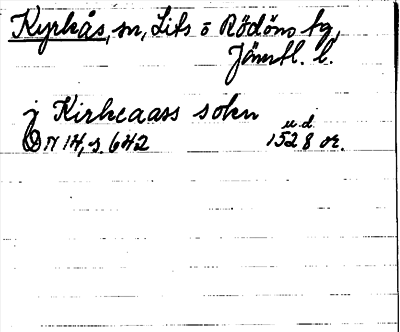 Kyrkås, sn, Lits o Rödöns tg,
Jämtl. l.
j Kirkeaass sokn
u.d.
DN 14, s. 642 1528 or.